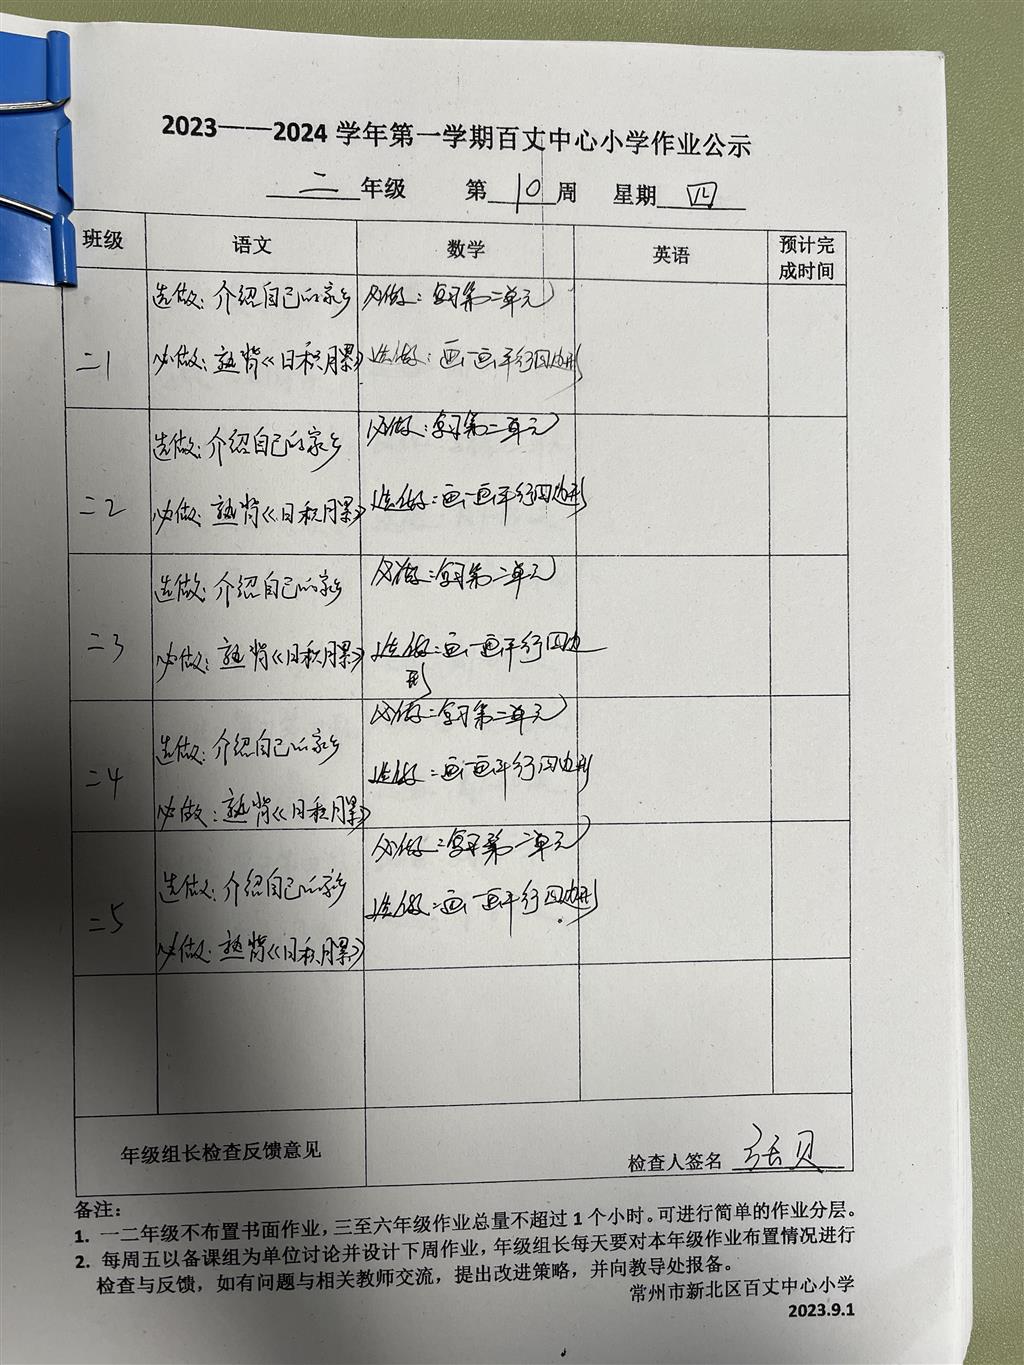 2023——2024 学年第一学期百丈中心小学作业公示
二 年级 第 10 周 星期 四
班级 语文 数学 英语 预计完成时间
二1
选做：介绍自己的家乡
必做：熟背《日积月累》
必做：复习第二单元
选做：画一画平行四边形
二2
选做：介绍自己的家乡
必做：熟背《日积月累》
必做：复习第二单元
选做：画一画平行四边形
二3
选做：介绍自己的家乡
必做：熟背《日积月累》
必做：复习第二单元
选做：画一画平行四边
形
二4
选做：介绍自己的家乡
必做：熟背《日积月累》
必做：复习第二单元
选做：画一画平行四边形
二5
选做：介绍自己的家乡
必做：熟背《日积月累》
必做：复习第二单元
选做：画一画平行四边形
年级组长检查反馈意见
检查人签名 张贝
备注：
1. 一二年级不布置书面作业，三至六年级作业总量不超过 1 个小时。可进行简单的作业分层。
2. 每周五以备课组为单位讨论并设计下周作业，年级组长每天要对本年级作业布置情况进行
检查与反馈，如有问题与相关教师交流，提出改进策略，并向教导处报备。
常州市新北区百丈中心小学
2023.9.1